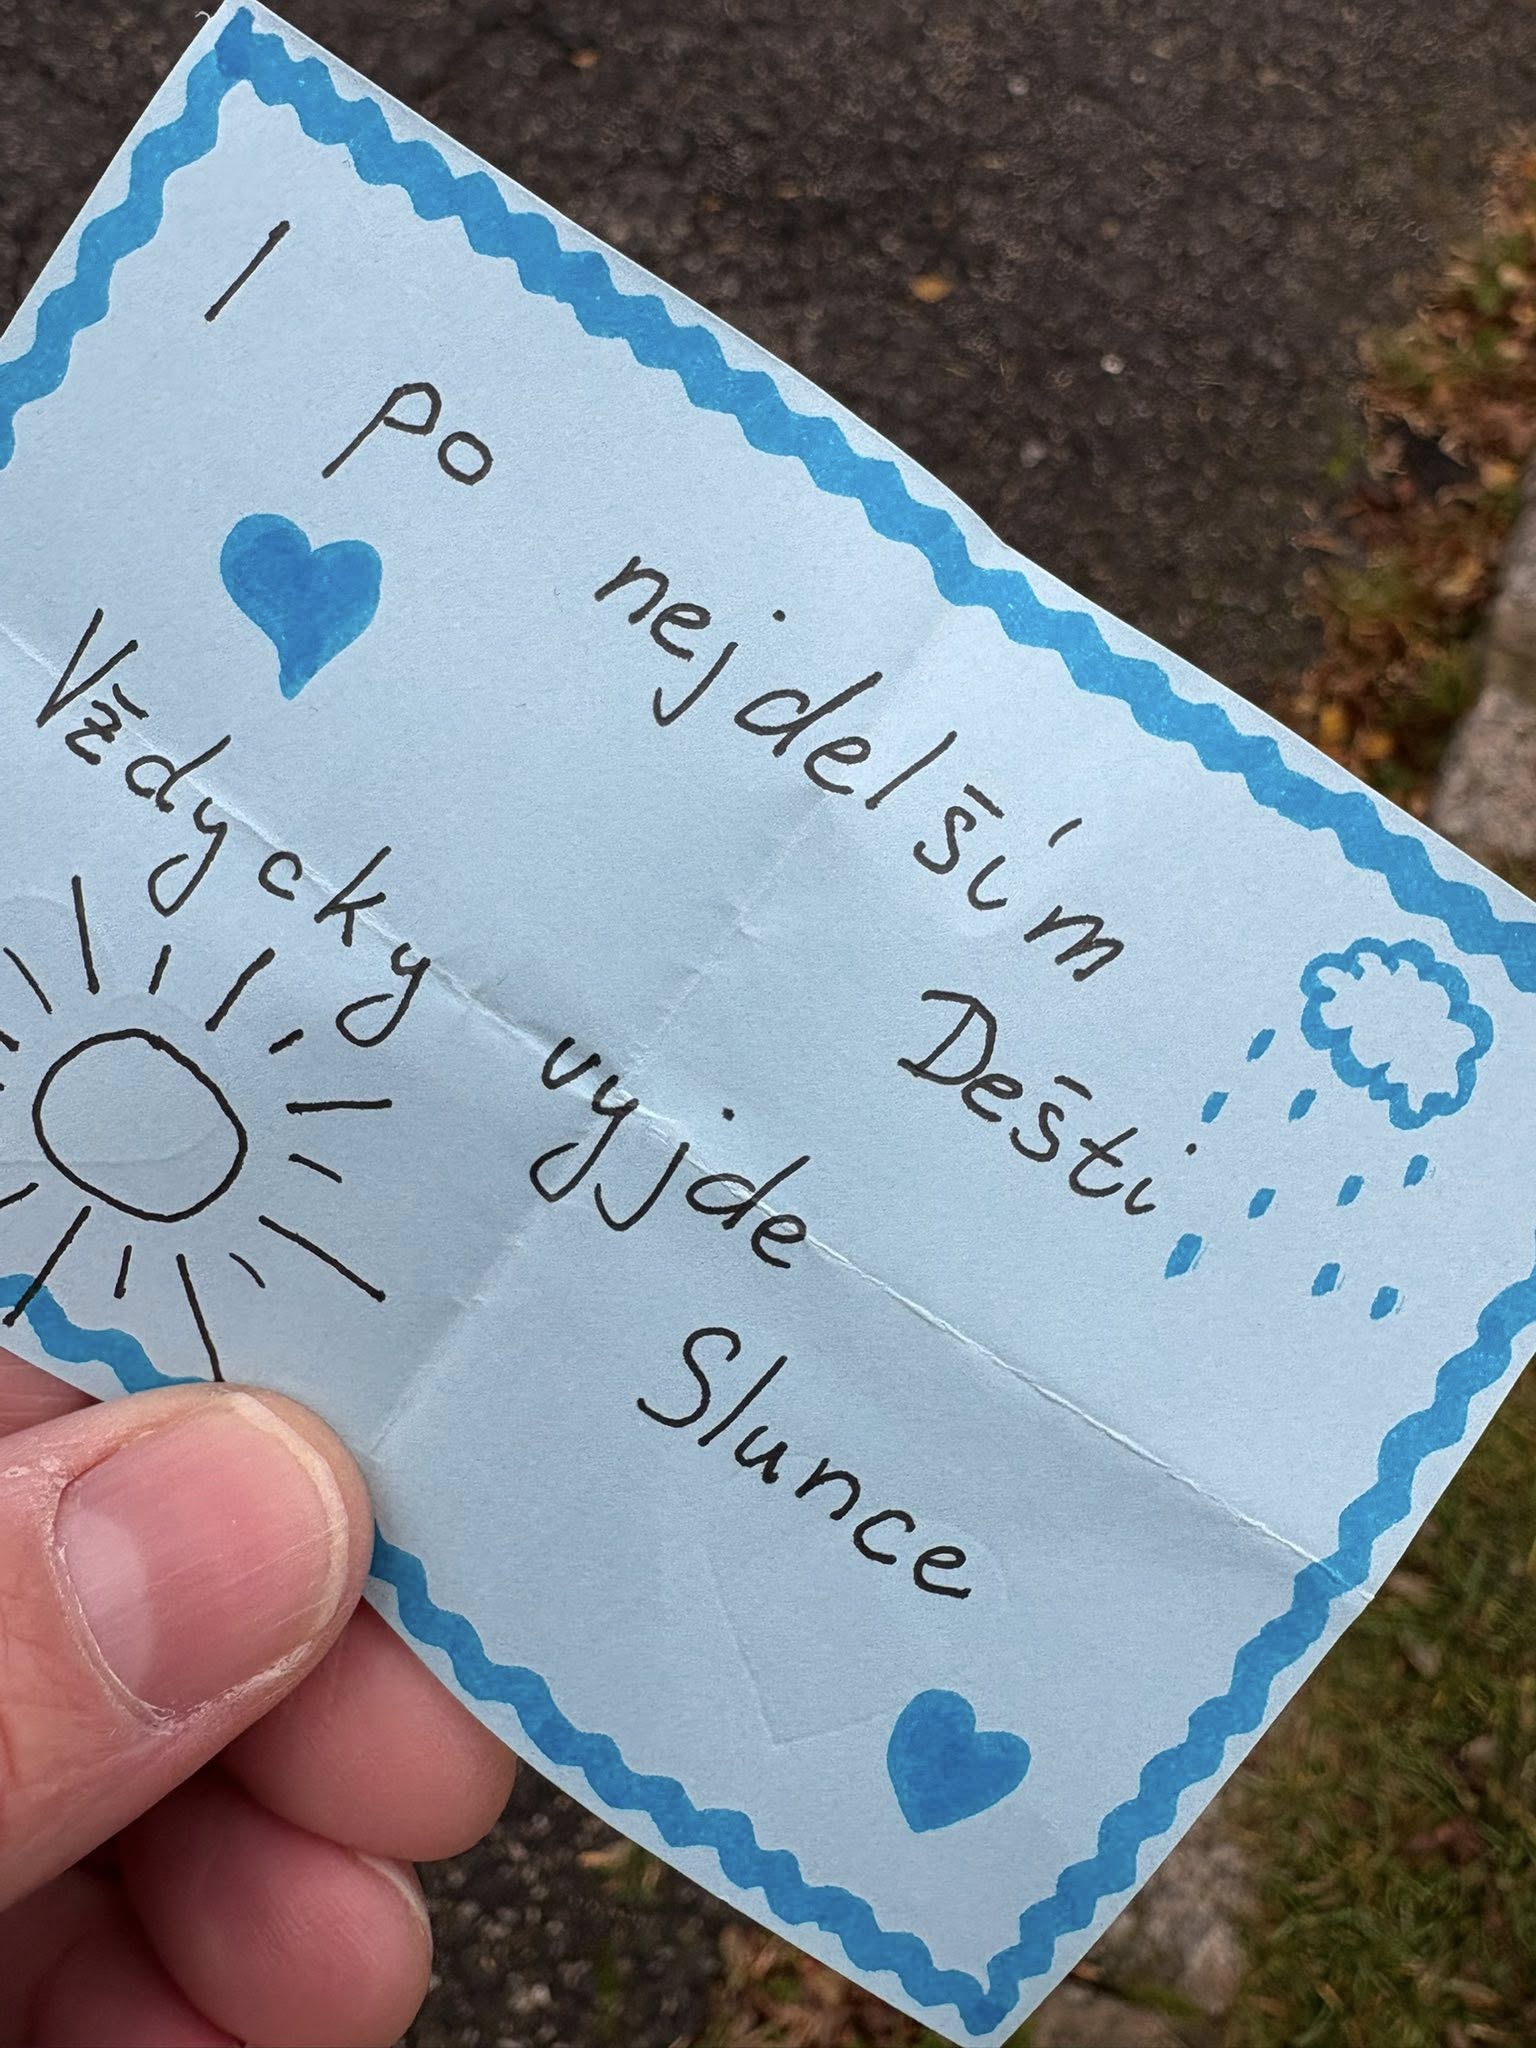 I po nejdelším Dešti
Vždycky vyjde Slunce